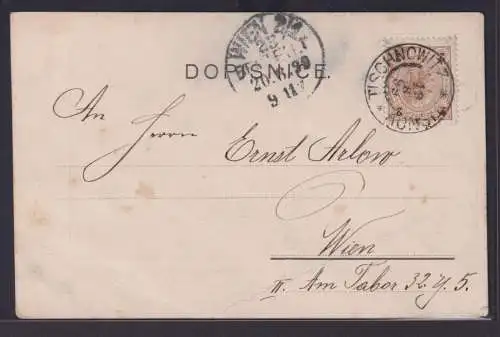 WIEN 2/1
20.8.99
9 11V
DOPISNICE.
TISCHNOWITZ
TIŠNOV
An
Herrn
Ernst Arlow
Wien
II. Am Tabor 32. y. 5.